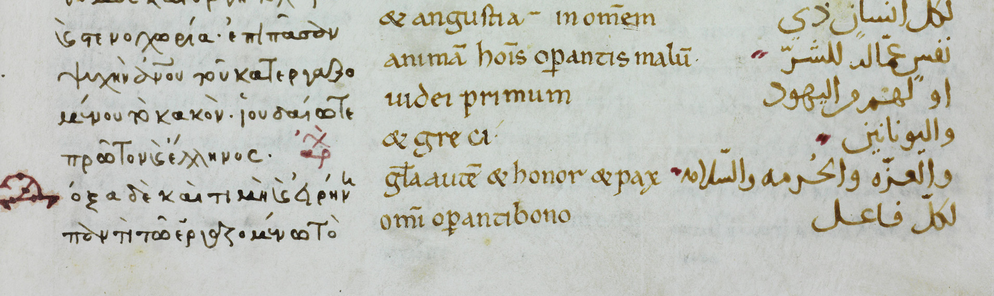 ϛ στενοχωρία· ἐπι πᾶσαν
ψυχὴν ἀνου τοῦ κατεργαζο
μένου τὸ κακὸν· ἰουδαίω τε
πρῶτον ϛ ἕλληνος·
όξα δὲ καὶ τιμὴ ϛ εἰρήνη
παντὶ τῶ ἐργαζομένω τὸ
& angustia in om̄em
animā hoīs op̱antis malū·
iudei primum
& greci·
gła autē & honor & pax
om̄i op̱anti bono
لكل انسان ذي
نفس عمّال للشرّ
اولهم واليهود
واليونانين
والعزّه والحُرمه والسّلام
لكلّ فاعل